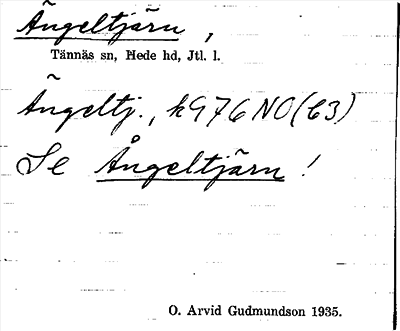 Ängeltjärn,
Tännäs sn, Hede hd, Jtl. l.
Ängeltj., k976 NO (b3)
Se Ångeltjärn!
O. Arvid Gudmundson 1935.